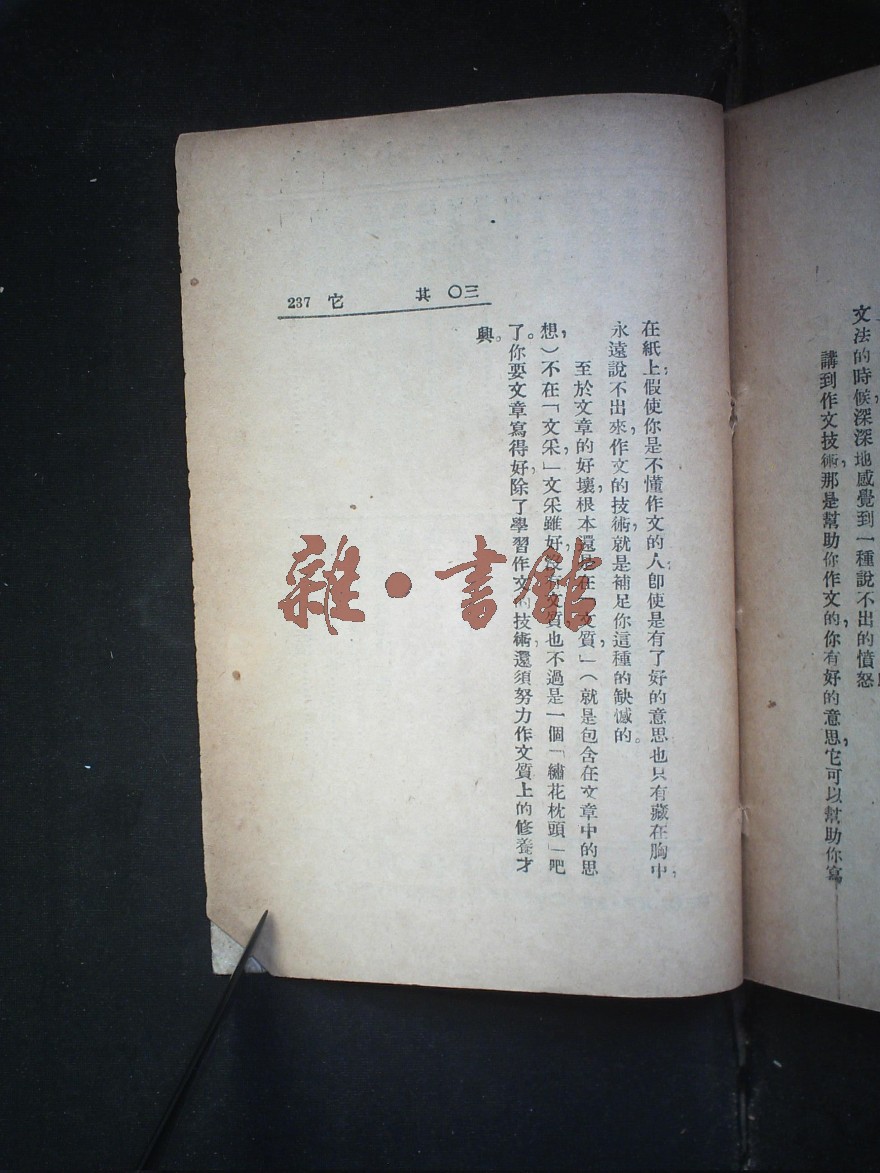 文法的時候,深深地感覺到一種說不出的憤怒
講到作文技術,那是幫助你作文的,你有好的意思,它可以幫助你寫
三〇 其 它 237
在紙上,假使你是不懂作文的人,卽使是有了好的意思,也只有藏在胸中,
永遠說不出來,作文的技術,就是補足你這種的缺憾的。
至於文章的好壞,根本還是在「文質」(就是包含在文章中的思
想,)不在「文采」,文采雖好,沒有文質,也不過是一個「繡花枕頭」吧
了。你要文章寫得好,除了學習作文的技術,還須努力作文質上的修養才
興。
雜·書館